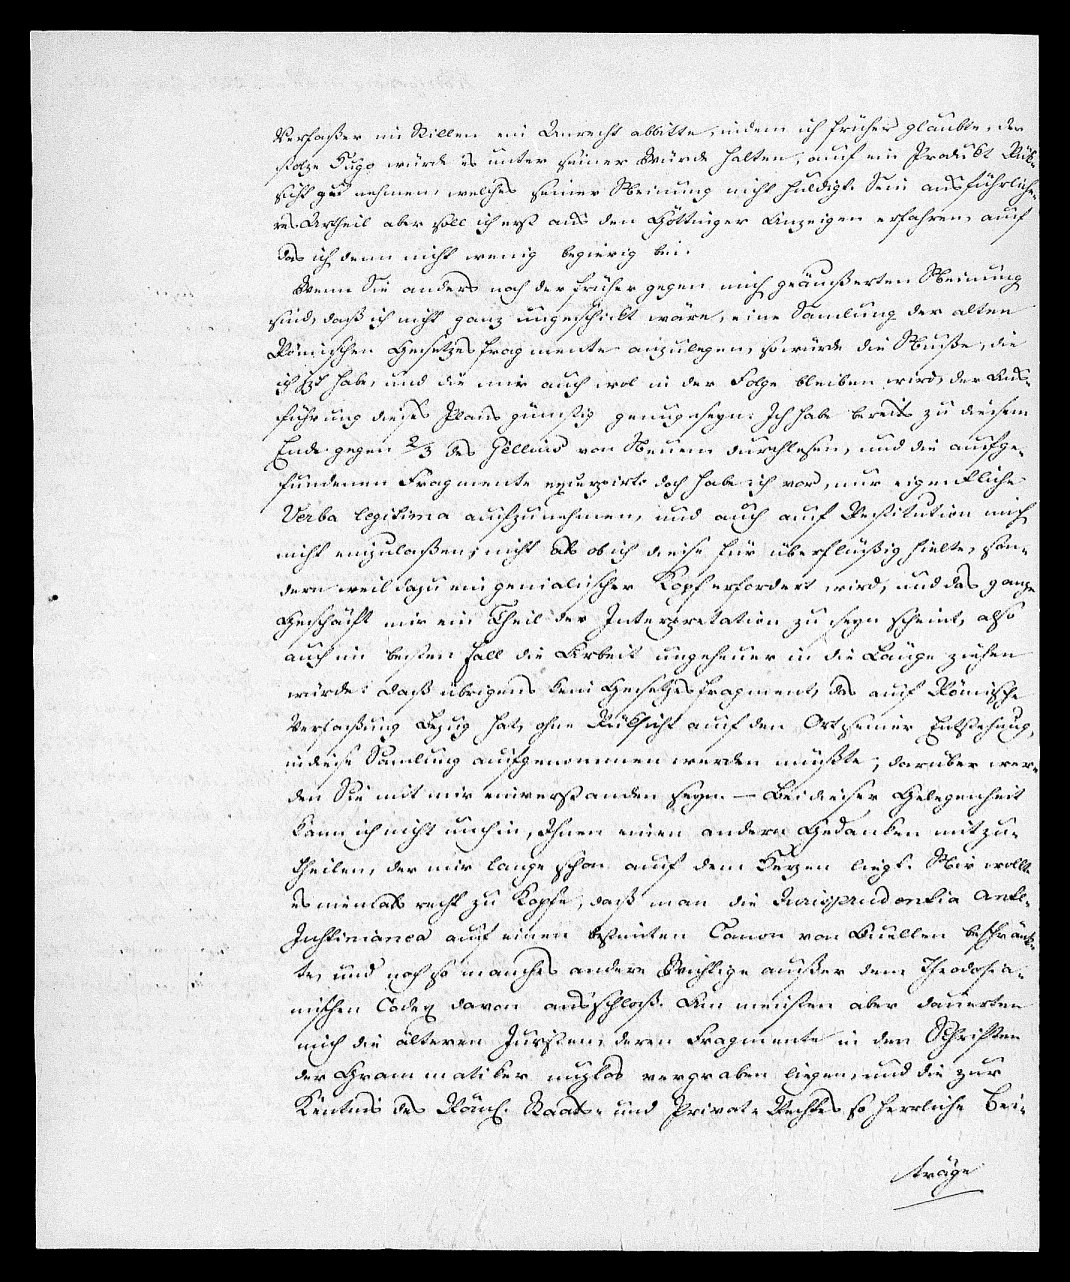 Verfaßer im Stillen ein Unrecht abbitte, indem ich früher glaubte, der
stolze Hugo würde es unter seiner Würde halten, auf ein Produkt Rük-
sicht zu nehmen, welches seiner Meinung nicht huldigt. Sein ausführliche-
res Urtheil aber soll ich erst aus den Göttinger Anzeigen erfahren, auf
das ich denn nicht wenig begierig bin.
Wenn Sie anders noch der früher gegen mich geäußerten Meinung
sind, daß ich nicht ganz ungeschickt wäre, eine Samlung der alten
Römischen Gesetzesfragmente anzulegen, so würde die Muße, die
ich izt habe, und die mir auch wol in der Folge bleiben wird, der Aus-
führung dieses Plans günstig genug seyn. Ich habe bereits zu diesem
Ende gegen 2/3 des Gellius von Neuem durchlesen, und die aufge-
fundenen Fragmente excerpirt; doch habe ich vor, nur eigentliche
Verba legitima aufzunehmen, und auch auf Restitution mich
nicht einzulaßen; nicht als ob ich diese für überflüßig hielte, son-
dern weil dazu ein genialischer Kopf erfordert wird, und das ganze
Geschäft mir ein Theil der Interpretation zu seyn scheint, also
auch im besten Fall die Arbeit ungeheuer in die Länge ziehen
würde: daß übrigens kein Gesetzesfragment, das auf Römische
Verfaßung Bezug hat, ohne Rüksicht auf den Ort seiner Entstehung,
in diese Samlung aufgenommen werden müßte, darüber wer-
den Sie mit mir einverstanden seyn. — Bei dieser Gelegenheit
kann ich nicht umhin, Ihnen einen andern Gedanken mitzu-
theilen, der mir lange schon auf dem Herzen liegt. Mir wollte
es niemals recht zu Kopfe, daß man die Jurisprudentia Ante-
Justinianea auf einen bestimten Canon von Quellen beschränk-
te, und noch so manches andere Wichtige außer dem Theodosia-
nischen Codex davon ausschloß. Am meisten aber dauerten
mich die älteren Juristen, deren Fragmente in den Schriften
der Grammatiker nuzlos vergraben liegen, und die zur
Kentnis des Röm. Staats- und Privat-Rechtes so herrliche Bei-
träge